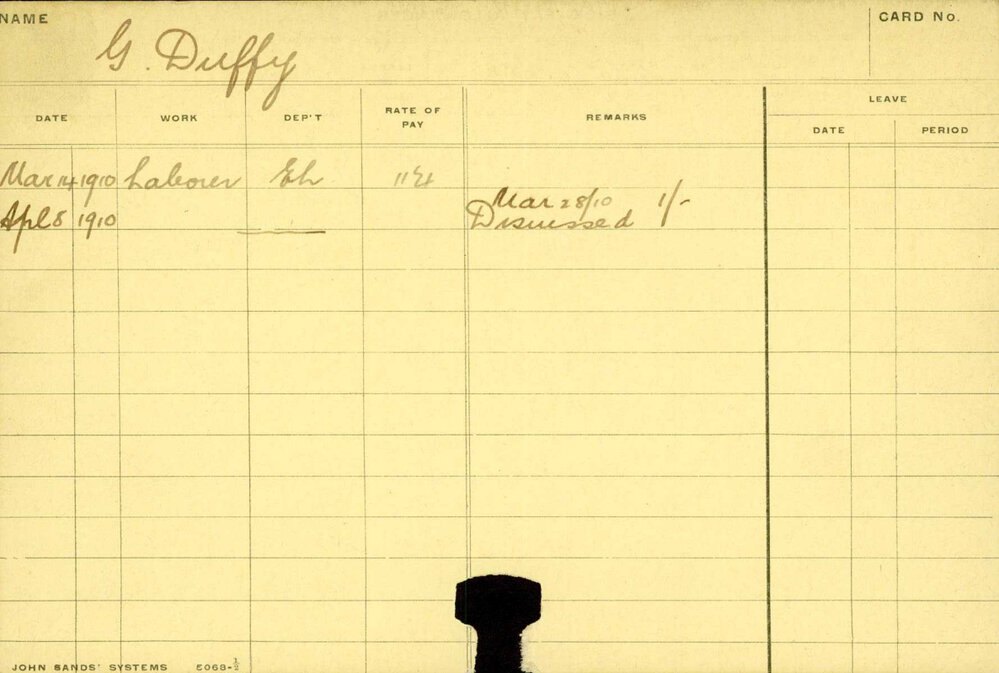 NAME
CARD No.
G. Duffy
LEAVE
DATE WORK DEP'T RATE OF PAY REMARKS DATE PERIOD
Mar 14 1910 Laborer Eh
Mar 28/10 1/-
Apl 8 1910 Dismissed
JOHN SANDS' SYSTEMS 5068-½